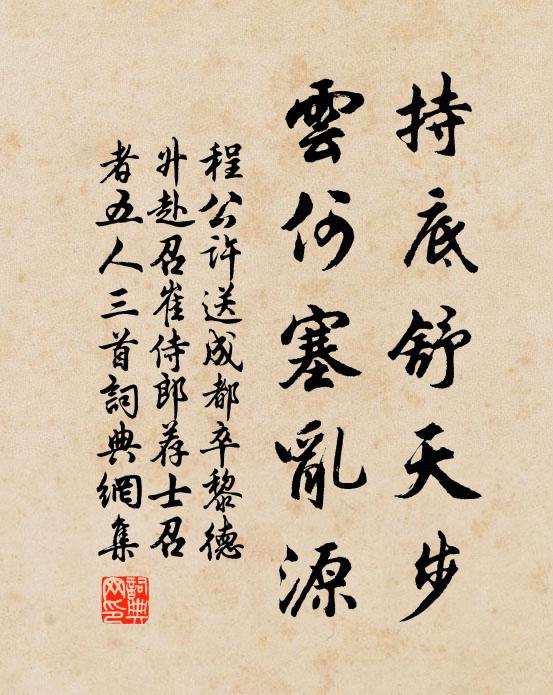 持底舒天步
雲何塞亂源
程公許送成都卒黎德
外赴召崔侍郎荐士召
者五人三首詞典網集
詞典網印